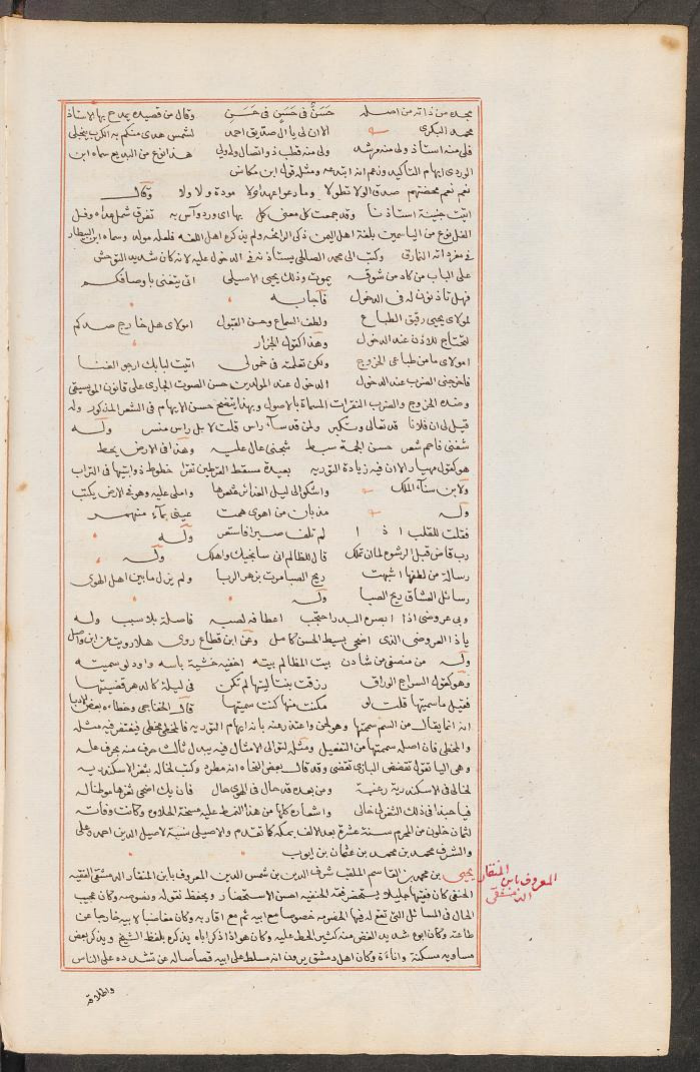 مجده من ذاته من اصله حَسَنٌ فى حَسَنٍ فى حَسَنِ وقال من قصيدة يمدح بها الاستاذ
محمد البكرى الا ان لى يا ال صديق احمد لشمس هدى منكم به الكرب ينجلى
فلى منه استاذ ولى منه مرشد ولى منه قطب ذو اتصال ولى ولى هذا نوع من البديع سماه ابن
الوردى ايهام التاكيد وزعم انه ابتدعه ومثله قول ابن مكانس
نعم نعم محضتهم صدق الولا تطولا وما رعوا عهدى لا مودة ولا ولا وقال
اتيت جنينة استاذنا وقد جمعت كل معنى كل بها اى ورد وآس به تفرق شمل عداه وفل
الفل نوع من الياسمين بلغة اهل اليمن ذكى الرائحة ولم يذكره اهل اللغة فلعله مولد وسماه ابن البيطار
فى مفرداته النارق وكتب الى محمد الصالحى يستاذنه فى الدخول عليه لانه كان شديد التوحش
على الباب من كاد من شوقه يموت وذلك يحيى الاصيلى اتى يتغنى باوصافكم
فهل تاذنون له فى الدخول فاجابه
لمولاى يحيى رقيق الطباع ولطف السماع وحسن القبول امولاى هل خارج صدكم
لتحتاج للاذن عند الدخول وهذا كقول الجزار
امولاى ما من طباعى الخروج ولكن تعلمته فى خمولى اتيت لبابك ارجو الغنا
فاخرجنى الضرب عند الدخول الدخول عند المولدين حسن الصوت الجارى على قانون الموسيقى
وضده الخروج والضرب النقرات المسماة بالاصول وبهذا يتضح حسن الايهام فى الشعر المذكور وله
قيل لى ان فلانا قد تعالى وتكبر ولمن قد ساء راس قلت لا بل راس منسر وله
شفنى فاحم شعر حسن الجعة سبط شجنى عال عليه وهذا فى الارض يحط
هو كقول مهيار الا ان فيه زيادة التورية بعيدة مسقط القرطين تقرا خطوط ذوابتيها فى التراب
ولابن سناء الملك واشكو الى ليل الغدائر شعرها واملى عليه وهو فى الارض يكتب
وله مذ بان من اهوى همت عينى بماء منهمر
فقلت للقلب ا ذ ا لم تلف صبرا فاستعر وله
رب قاض قبل الرشوة لما ان تملك قال للظالم انى سانجيك واهلك وله
رسالة من لطفها اشبهت ريح الصبا مرت بزهر الربا ولم يزل ما بين اهل الهوى
رسائل العشاق ريح الصبا وله
وبى عروضى اذا ابصره البدر احتجب اعطافه لصبه فاصلة بلا سبب وله
يا ذا العروضى الذى اضحى بسيط الحسن كامل وعن ابن قطاع روى هلا رويت عن ابن واصل
وله من منصفى من شادن بيت المظالم بيته اخفيه خشية باسه واود لو سميته
وهو كقول السراج الوراق رزقت بنتا ليتها لم تكن فى ليلة كالدهر قضيتها
فقيل ما سميتها قلت لو مكنت منها كنت سميتها قال الخفاجى وخطاءه بعض الادبا
انه انما يقال من السم سممتها وهو لحن واعتذر عنه بانه ايهام التورية فالخطى مخطى فيغتفر فيه مثله
والمخطى فان اصله سممتها من التفعيل ومثله لتوالى الامثال فيه يبدل ثالث حرف منه بحرف علة
وهى اليا تقول تقضض البازى تقضى وقد قال بعض النحاة انه مطرد وكتب لخاله بثغر الاسكندرية
لخالى فى الاسكندرية رغبة ومن بعده قد حال فى الهوى حال فان يك اضحى ثغرها موطنا له
فيا حبذا فى ذلك الثغر لى خالى واشعاره كلها من هذا النمط عليه مسحة الحلاوة وكانت وفاته
لثمان خلون من المحرم سنة عشرة بعد الالف بمكة كما تقدم والاصيلى نسبة لاصيل الدين احمد بن على
والشرف محمد بن محمد بن عثمان بن ايوب
يحيى بن محمد بن القاسم الملقب شرف الدين بن شمس الدين المعروف بابن المنقار الدمشقى الفقيه
المعروف بابن المنقار الدمشقى
الحنفى كان فقيها جليلا يستحضر فقه الحنفية احسن الاستحضار ويحفظ نقوله ونصوصه وكان عجيب
الحال فى المسائل التى تقع له فيها الخصومة خصوصا مع ابيه ثم مع اقاربه وكان مغاضبا لابيه خارجا عن
طاعته وكان ابوه شديد الغض منه كثير الحط عليه وكان هو اذا ذكر اباه يذكره بلفظ الشيخ ويذكر بعض
مساويه مسكنة واناءة وكان اهل دمشق يرون انه مسلط على ابيه قصاصا له عن تشدده على الناس
واطلاقه